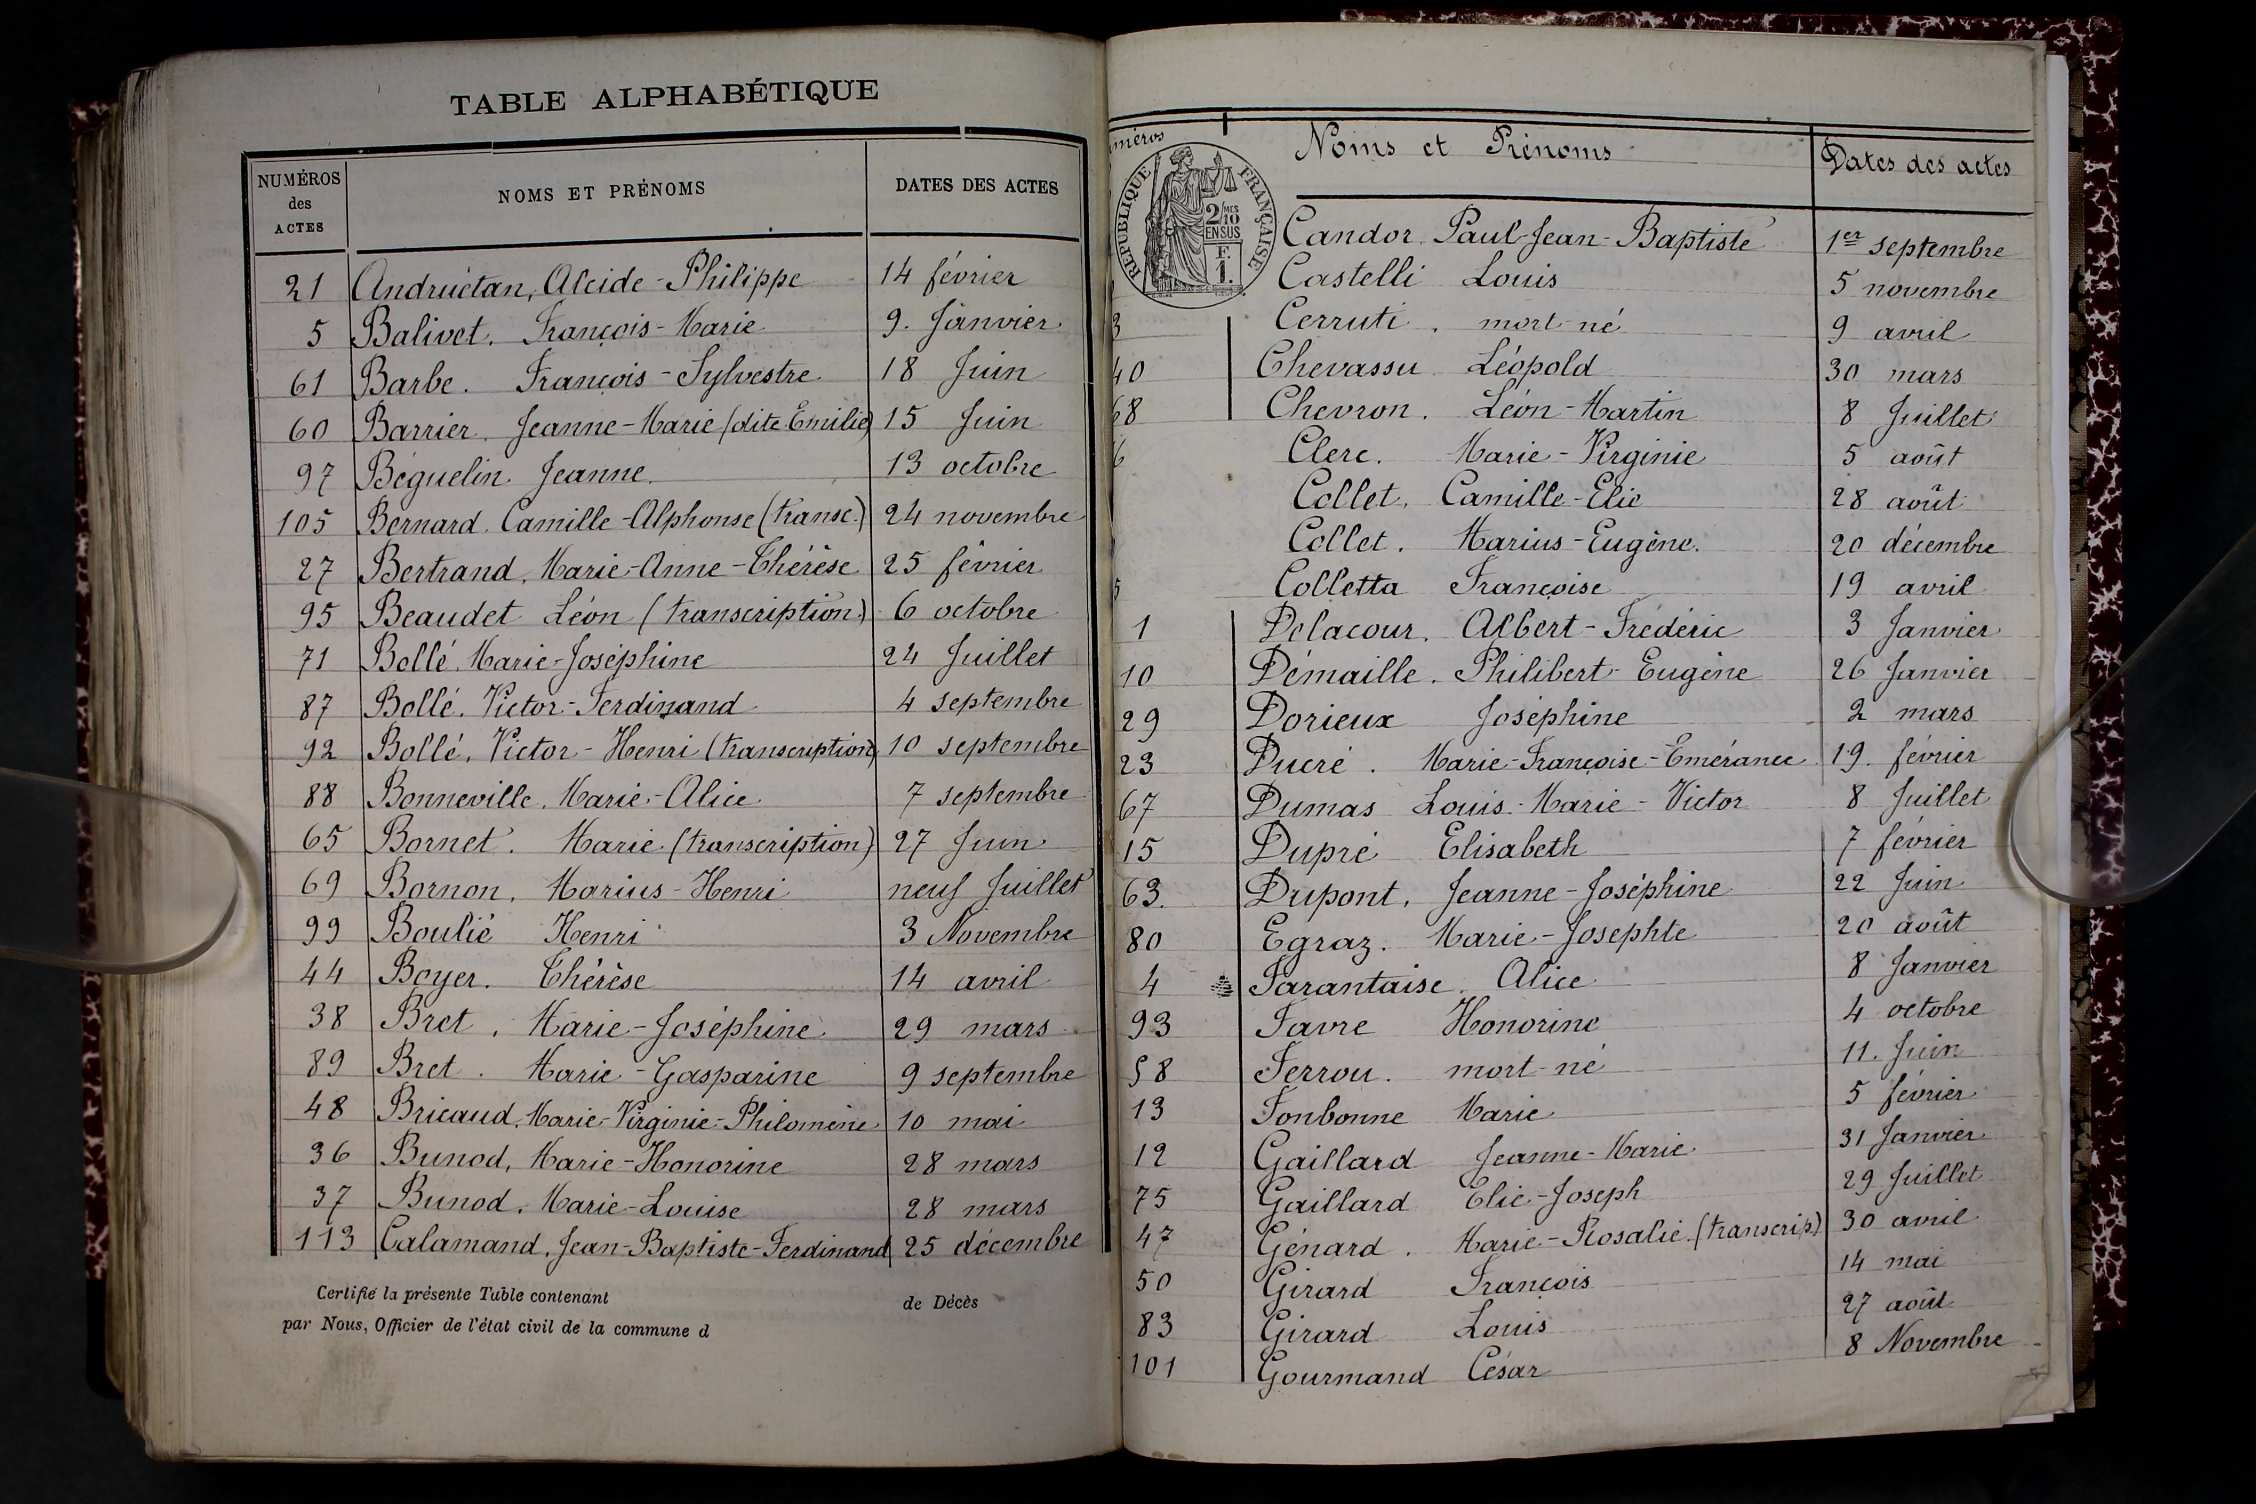 TABLE ALPHABÉTIQUE
NUMÉROS des ACTES NOMS ET PRÉNOMS DATES DES ACTES
21 Andruétan, Alcide-Philippe 14 février
5 Balivet. François-Marie 9. Janvier
61 Barbe. François-Sylvestre 18 Juin
60 Barrier. Jeanne-Marie (dite Emilie) 15 Juin
97 Béguelin Jeanne. 13 octobre
105 Bernard Camille-Alphonse (transc.) 24 novembre
27 Bertrand, Marie-Anne-Thérèse 25 février
95 Beaudet Léon (transcription) 6 octobre
71 Bollé. Marie-Joséphine 24 Juillet
87 Bollé. Victor-Ferdinand 4 septembre
92 Bollé. Victor-Henri (transcription) 10 septembre
88 Bonneville. Marie-Alice 7 septembre
65 Bornet. Marie (transcription) 27 Juin
69 Bornon. Marius-Henri neuf Juillet
99 Boulié Henri 3 Novembre
44 Boyer. Thérèse 14 avril
38 Bret. Marie-Joséphine 29 mars
89 Bret. Marie-Gasparine 9 septembre
48 Bricaud. Marie-Virginie-Philomène 10 mai
36 Bunod, Marie-Honorine 28 mars
37 Bunod. Marie-Louise 28 mars
113 Calamand, Jean-Baptiste-Ferdinand 25 décembre
Certifié la présente Table contenant de Décès
par Nous, Officier de l'état civil de la commune d
méros Noms et Prénoms Dates des actes
RÉPUBLIQUE FRANÇAISE
2/10 MES
EN SUS
F.
1.
Candor Paul-Jean-Baptiste 1er septembre
Castelli Louis 5 novembre
3 Cerruti. mort-né 9 avril
40 Chevassu Léopold 30 mars
68 Chevron. Léon-Martin 8 Juillet
6 Clerc. Marie-Virginie 5 août
Collet. Camille-Elie 28 août
Collet. Marius-Eugène. 20 décembre
5 Colletta Françoise 19 avril
1 Delacour. Albert-Frédéric 3 Janvier
10 Démaille. Philibert-Eugène 26 Janvier
29 Dorieux Joséphine 2 mars
23 Ducré. Marie-Françoise-Emérance 19. février
67 Dumas Louis-Marie-Victor 8 Juillet
15 Dupré Elisabeth 7 février
63. Dupont. Jeanne-Joséphine 22 Juin
80 Egraz. Marie-Josephte 20 août
4 Farantaise. Alice 8 Janvier
93 Favre Honorine 4 octobre
58 Ferrou. mort-né 11. Juin
13 Fonbonne Marie 5 février
12 Gaillard Jeanne-Marie 31 Janvier
75 Gaillard Elie-Joseph 29 Juillet
47 Génard. Marie-Rosalie (transcrip) 30 avril
50 Girard François 14 mai
83 Girard Louis 27 août
101 Gourmand César 8 Novembre